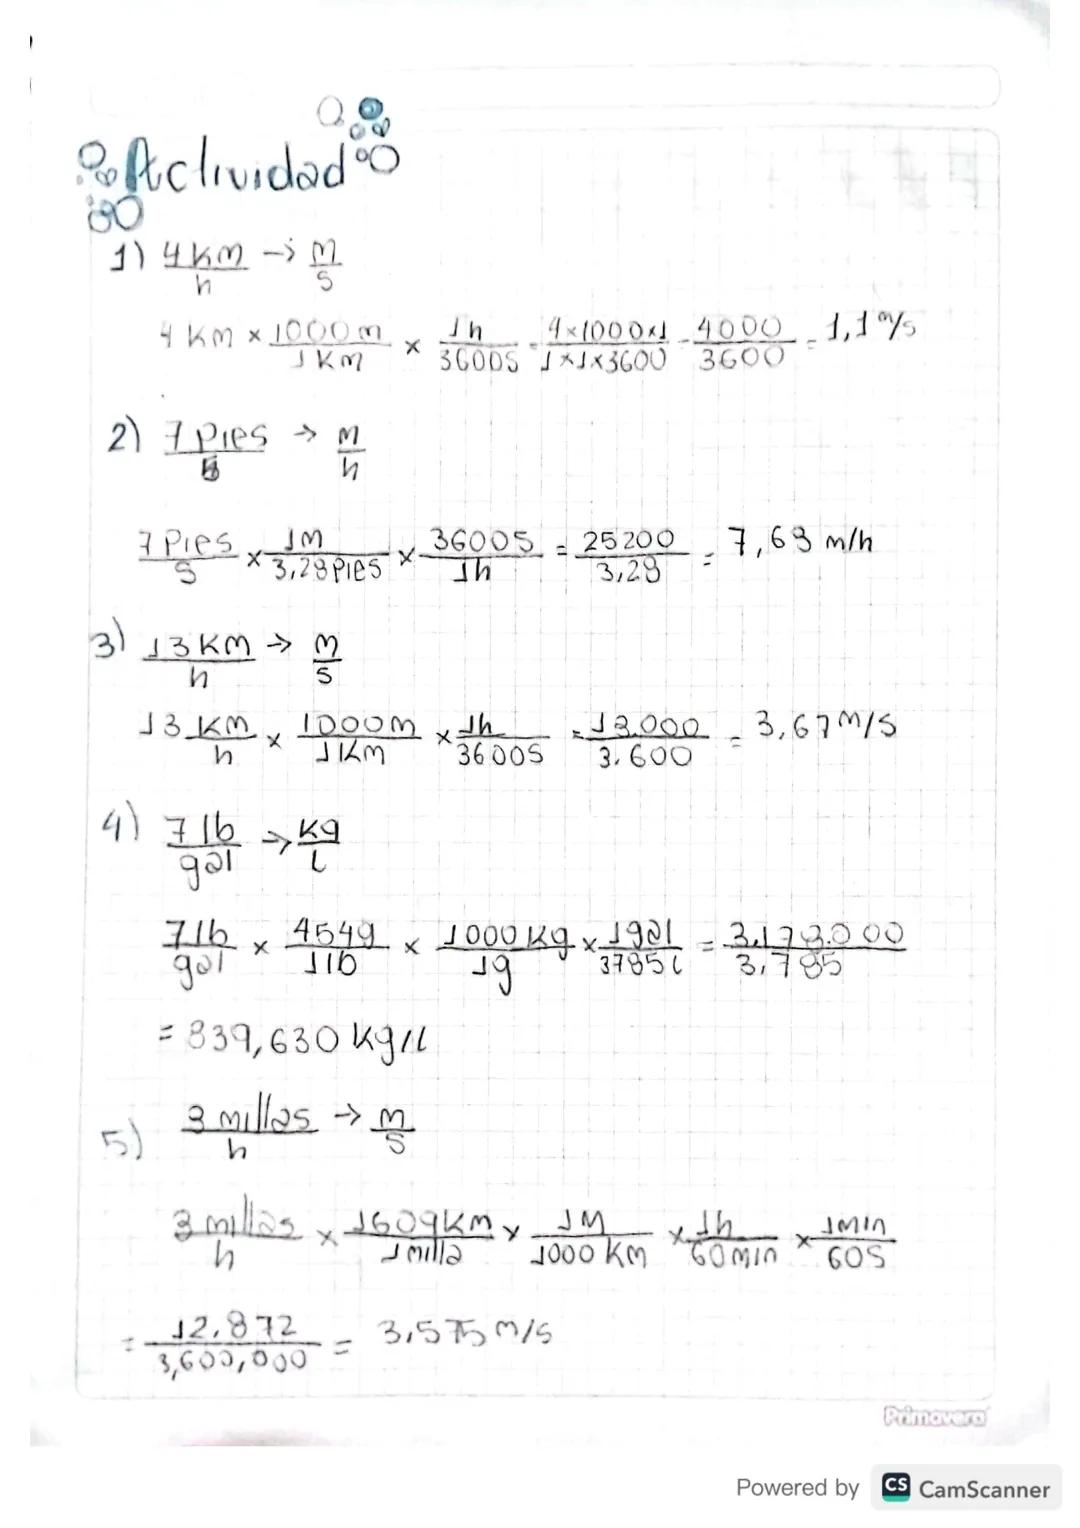 Actividad
1) 4 Km/h -> m/s
4 Km × 1000 m/1 Km × 1h/3600S = 4×1000×1/1×1×3600 = 4000/3600 = 1,1 m/s
2) 7 Pies/s → m/h
7 Pies/s × 1m/3,28 Pies × 3600S/1h = 25200/3,28 = 7,63 m/h
3) 13 Km/h → m/s
13 Km/h × 1000m/1Km × 1h/3600S = 13.000/3.600 = 3,67 m/s
4) 7 lb/gal → Kg/L
7 lb/gal × 454g/1lb × 1000 Kg/1g × 1gal/3785 L = 3.178.000/3,785
= 839,630 Kg/L
5) 3 millas/h → m/s
3 millas/h × 1609Km/1milla × 1M/1000 Km × 1h/60min × 1min/60S
= 12.872/3,600,000 = 3,575 m/s
Primavera
Powered by CS CamScanner